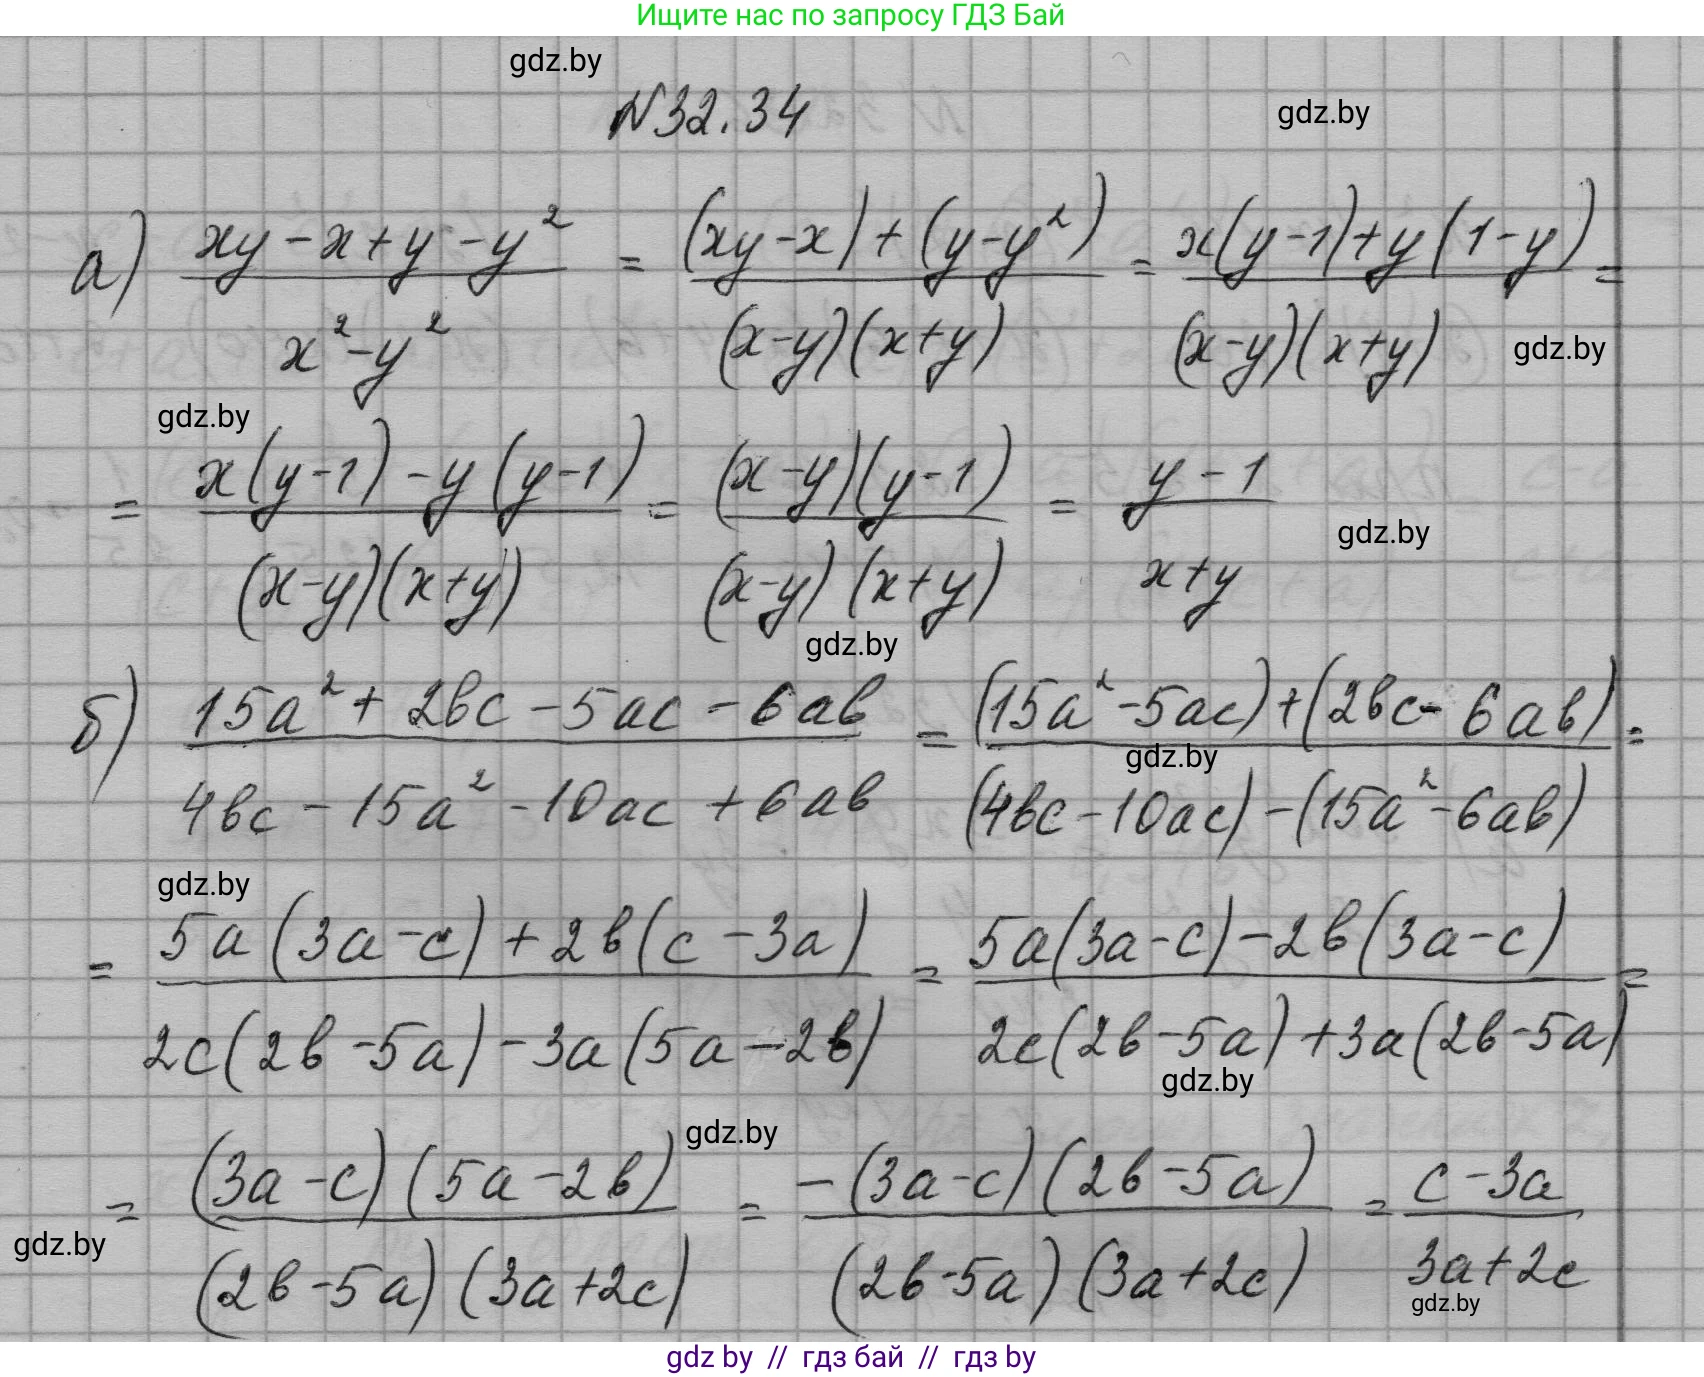 Ищите нас по запросу ГДЗ Бай
gdz.by
N32.34
gdz.by
а) (xy - x + y - y²)/(x² - y²) = ((xy - x) + (y - y²))/((x - y)(x + y)) = (x(y - 1) + y(1 - y))/((x - y)(x + y)) =
gdz.by
gdz.by
= (x(y - 1) - y(y - 1))/((x - y)(x + y)) = ((x - y)(y - 1))/((x - y)(x + y)) = (y - 1)/(x + y)
gdz.by
gdz.by
б) (15a² + 2bc - 5ac - 6ab)/(4bc - 15a² - 10ac + 6ab) = ((15a² - 5ac) + (2bc - 6ab))/((4bc - 10ac) - (15a² - 6ab)) =
gdz.by
gdz.by
= (5a(3a - c) + 2b(c - 3a))/(2c(2b - 5a) - 3a(5a - 2b)) = (5a(3a - c) - 2b(3a - c))/(2c(2b - 5a) + 3a(2b - 5a)) =
gdz.by
gdz.by
= ((3a - c)(5a - 2b))/((2b - 5a)(3a + 2c)) = (-(3a - c)(2b - 5a))/((2b - 5a)(3a + 2c)) = (c - 3a)/(3a + 2c)
gdz.by
gdz.by
gdz by // гдз бай // гдз by